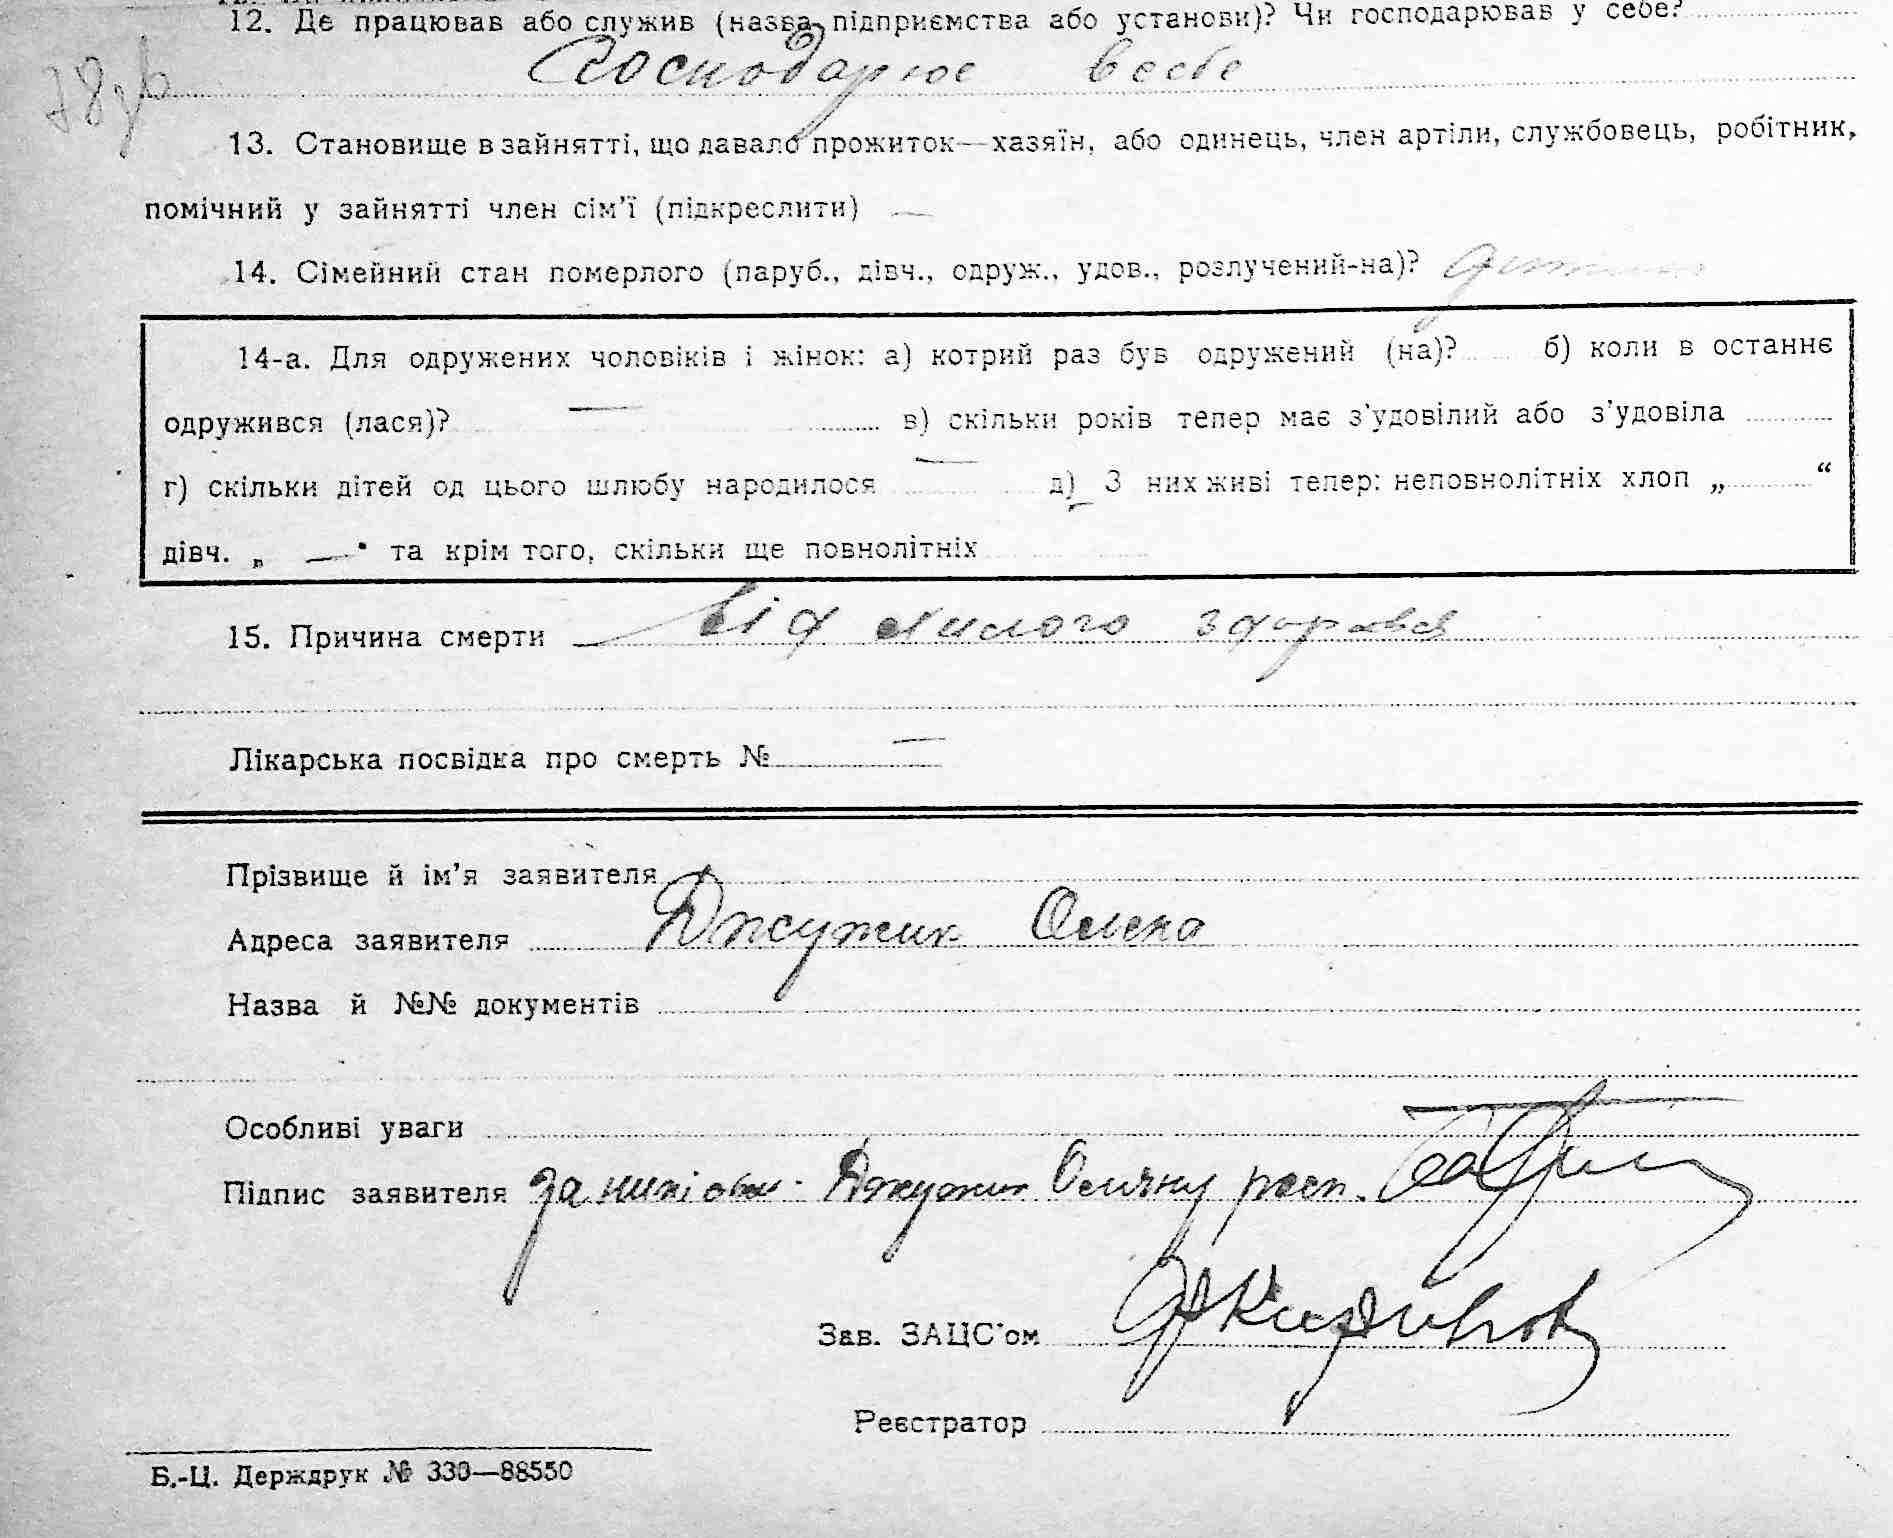 12. Де працював або служив (назва підприємства або установи)? Чи господарював у себе?
Господарює в себе
13. Становище в зайнятті, що давало прожиток—хазяїн, або одинець, член артіли, службовець, робітник,
помічний у зайнятті член сім'ї (підкреслити) —
14. Сімейний стан померлого (паруб., дівч., одруж., удов., розлучений-на)? дитина
14-а. Для одружених чоловіків і жінок: а) котрий раз був одружений (на)? б) коли в останнє
одружився (лася)? — в) скільки років тепер має з'удовілий або з'удовіла
г) скільки дітей од цього шлюбу народилося — д) З них живі тепер: неповнолітніх хлоп „ “
дівч. „ — " та крім того, скільки ще повнолітніх
15. Причина смерти від хилого здоровя
Лікарська посвідка про смерть № —
Прізвище й ім'я заявителя
Адреса заявителя Джужик Олена
Назва й №№ документів
Особливі уваги
Підпис заявителя за Джужик розп.
Зав. ЗАЦС'ом
Реєстратор
Б.-Ц. Держдрук № 330—88550